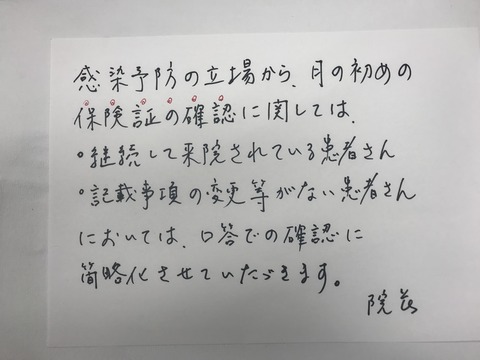 感染予防の立場から、月の初めの
保険証の確認に関しては、
・継続して来院されている患者さん
・記載事項の変更等がない患者さん
においては、口答での確認に
簡略化させていたづきます。
院長